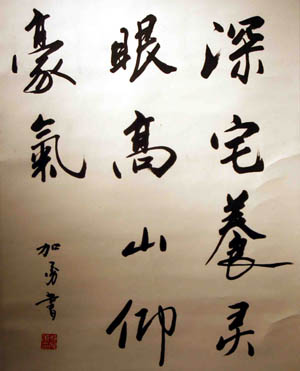 深宅養灵
眼高山仰
豪氣
加勇書